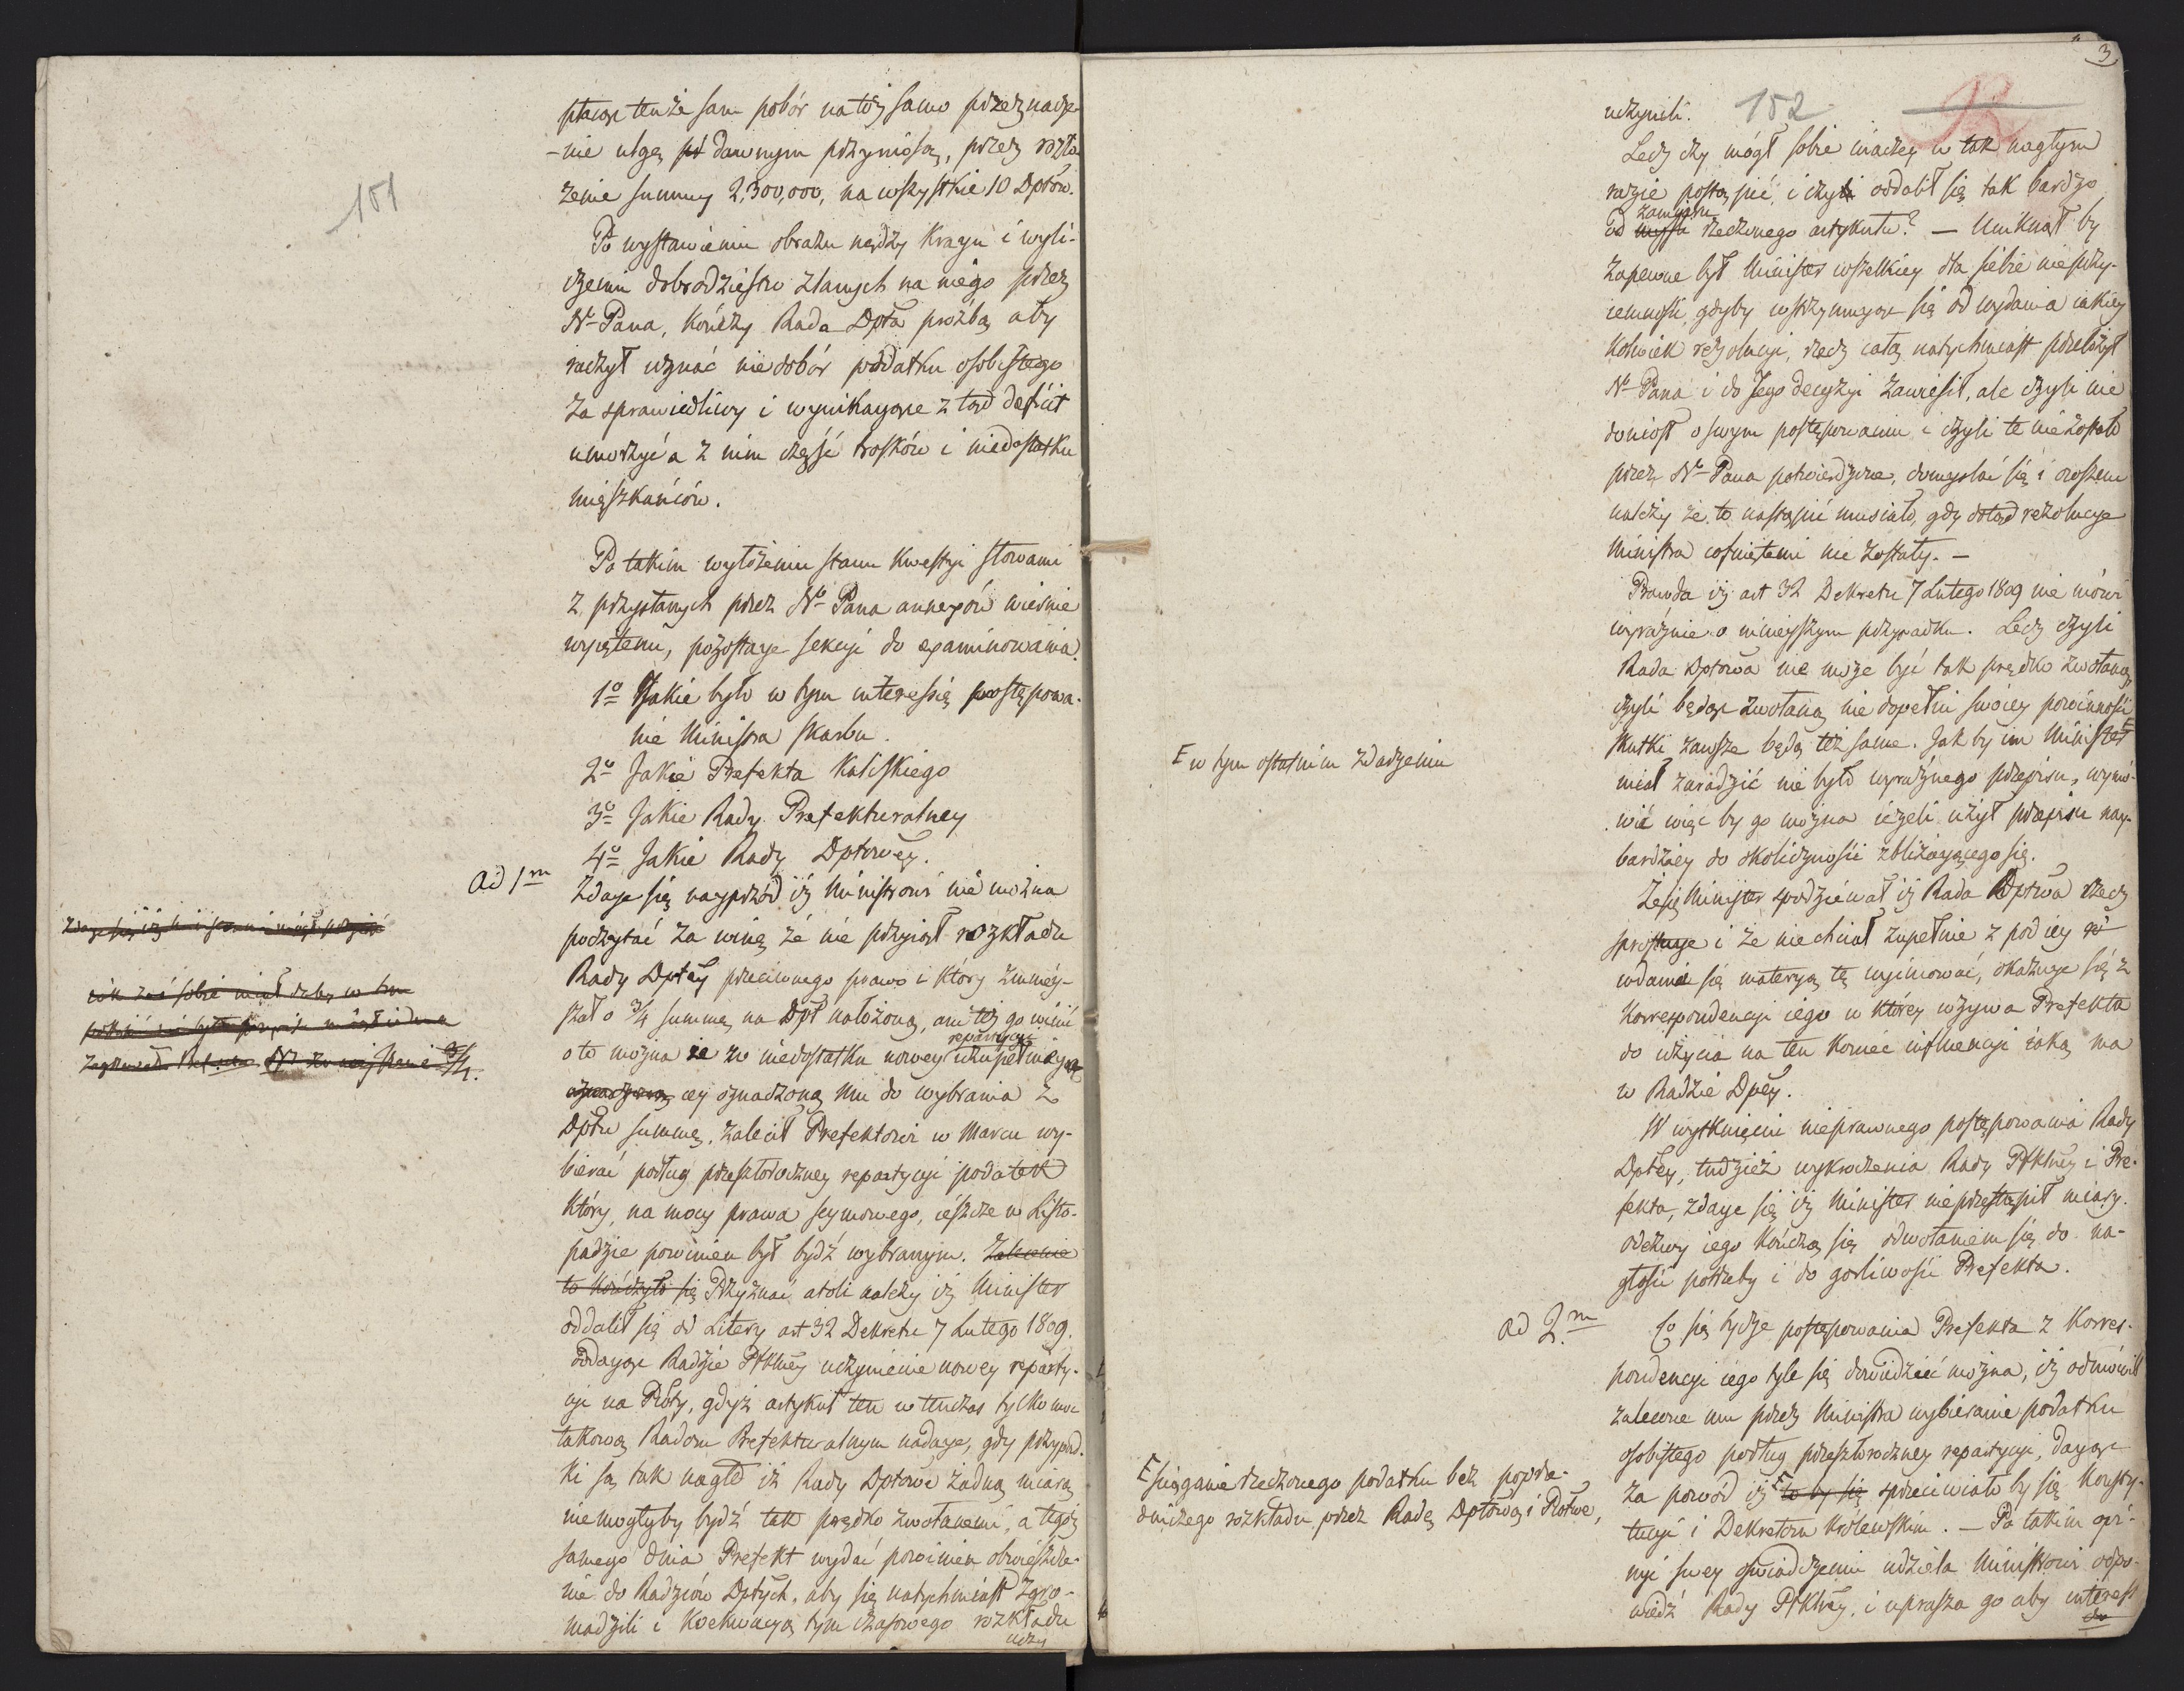 151
płacąc tenże sam pobór na tóż samo przeznacze-
-nie ulgę dawnym przyniosą, przez rozło
żenie summy 2,300,000, na wszystkie 10 Dptów.
Po wystawieniu obrazu nędzy Kraju i wyli-
czeniu dobrodzieystw zlanych na niego przez
N-Pana, kończy Rada Dptā prożbą aby
raczył uznać niedobór poddatku osobistego
za sprawiedliwy i wynikaiące z tąd deficit
umorzyć a z nim część trosków i niedostatku
mięszkańców.
Po takim wyłożeniu stanu kwestyi słowami
z przysłanych przez N- Pana annexów wiernie
wyiętemi, pozostaje sekcyi do examinowania
1º Jakie było w tym interessie postępowa-
nie Ministra skarbu.
2º Jakie Prefekta Kaliskiego
3º Jakie Rady Prefekturalney
4º Jakie Rady Dptowéy.
ad 1m
Zdaje się nayprzód iż Ministrowi nie można
poczytać za winę że nie przyiął rozkładu
Rady Dptéy przeciwnego prawo i który zmniey-
szał o 3/4 summę na Dpt nałożoną, ani téż go winić
o to można że w niedostatku nowey repartycyi uzupełniaią
cey oznaczoną mu do wybrania z
Dptu summę, zalecił Prefektowi w Marcu wy-
bierać podług przeszłoroczney repartycyi podatek
który, na mocy prawa seymowego, ieszcze w Listo-
padzie powinien był bydź wybranym. Zalecenie
to kończyło się Przyznać atoli należy iż Minister
oddalił się od Litery art 32 Dekretu 7 Lutego 1809.
oddaiąc Radzie Pfktlnéy uczynienie nowey reparty-
cyi na Ptty, gdyż artykuł ten w tenczas tylko moc
takową Radom Prefekturalnym nadaje, gdy przypad-
ki są tak nagłe iż Rady Dptowe żadną miarą
nie mogłyby bydź tak prędko zwołanemi, a tegóż
samego dnia Prefekt wydać powinien obwieszcze-
nie do Radzców Dptych, aby się natychmiast zgro-
madzili i koekwacyą tymczasowego rozkładu
uczy
3/4.
3
152
uczynili.
Lecz czy mógł sobie inaczey w tak nagłym
razie postąpić, i czyli oddalił się tak bardzo
od zamiaru rzeczonego artykułu? — Uniknął by
zapewne był Minister wszelkiey dla siebie nieprzy-
iemności gdyby wstrzymuiąc się od wydania iakiey
kolwiek rezolucyi, rzecz całą natychmiast przełożył
N-Pana i do Jego decyzyi zawiesił, ale czyli nie
doniosł o swym postępowaniu i czyli te nie zostało
przez N-Pana potwierdzone, domyslać się i owszem
należy że to nastąpić musiało, gdy dotąd rezolucye
Ministra cofniętemi nie zostały. —
Prawda iż art 32 Dekretu 7 Lutego 1809 nie mówi
wyraźnie o ninieyszym przypadku. Lecz czyli
Rada Dptowa nie moze być tak prędko zwołaną,
czyli będąc zwołaną nie dopełni swoiey powinności
skutki zawsze będą téż same. Jak by im Minister
E w tym ostatnim zdarzeniu
miał zaradzić nie było wyraźnego przepisu, wymó-
wić więc by go można ieżeli użył przepisu nay-
bardziey do okoliczności zbliżaiącego się.
Że się Minister spodziewał iż Rada Dptwa rzecz
sprostuje i że niechciał zupełnie z pod iey
wdanie się materyą tę wyimować, okazuje się z
korrespondencyi iego w którey wzywa Prefekta
do użycia na ten koniec influencyi iaką ma
w Radzie Dptéy.
W wytknięciu nieprawnego postępowania Rady
Dptéy, tudzież wykroczenia Rady Pfktlnéy i Pre-
fekta, zdaje się iż Minister nieprzestąpił miary.
odezwy iego kończą się odwołaniem się do na-
głości potrzeby i do gorliwości Prefekta.
ad 2.m
Co się tycze postępowania Prefekta z korres-
pondencyi iego tyle się dowiedzieć można, iż odmówił
zalecone mu przez Ministra wybieranie podatku
osobistego podług przeszłoroczney repartycyi, daiąc
za powód iż to by się sprzeciwiało by się konsty-
E sciąganie rzeczonego podatku bez poprze-
dniczego rozkładu przez Radę Dptową i Ptowe,
tucyi i Dekretom Królewskim. — Po takim opi-
nii swey oświadczeniu udziela Ministrowi odpo-
wiedź Rady Pfktlnéy, i uprasza go aby interess
do